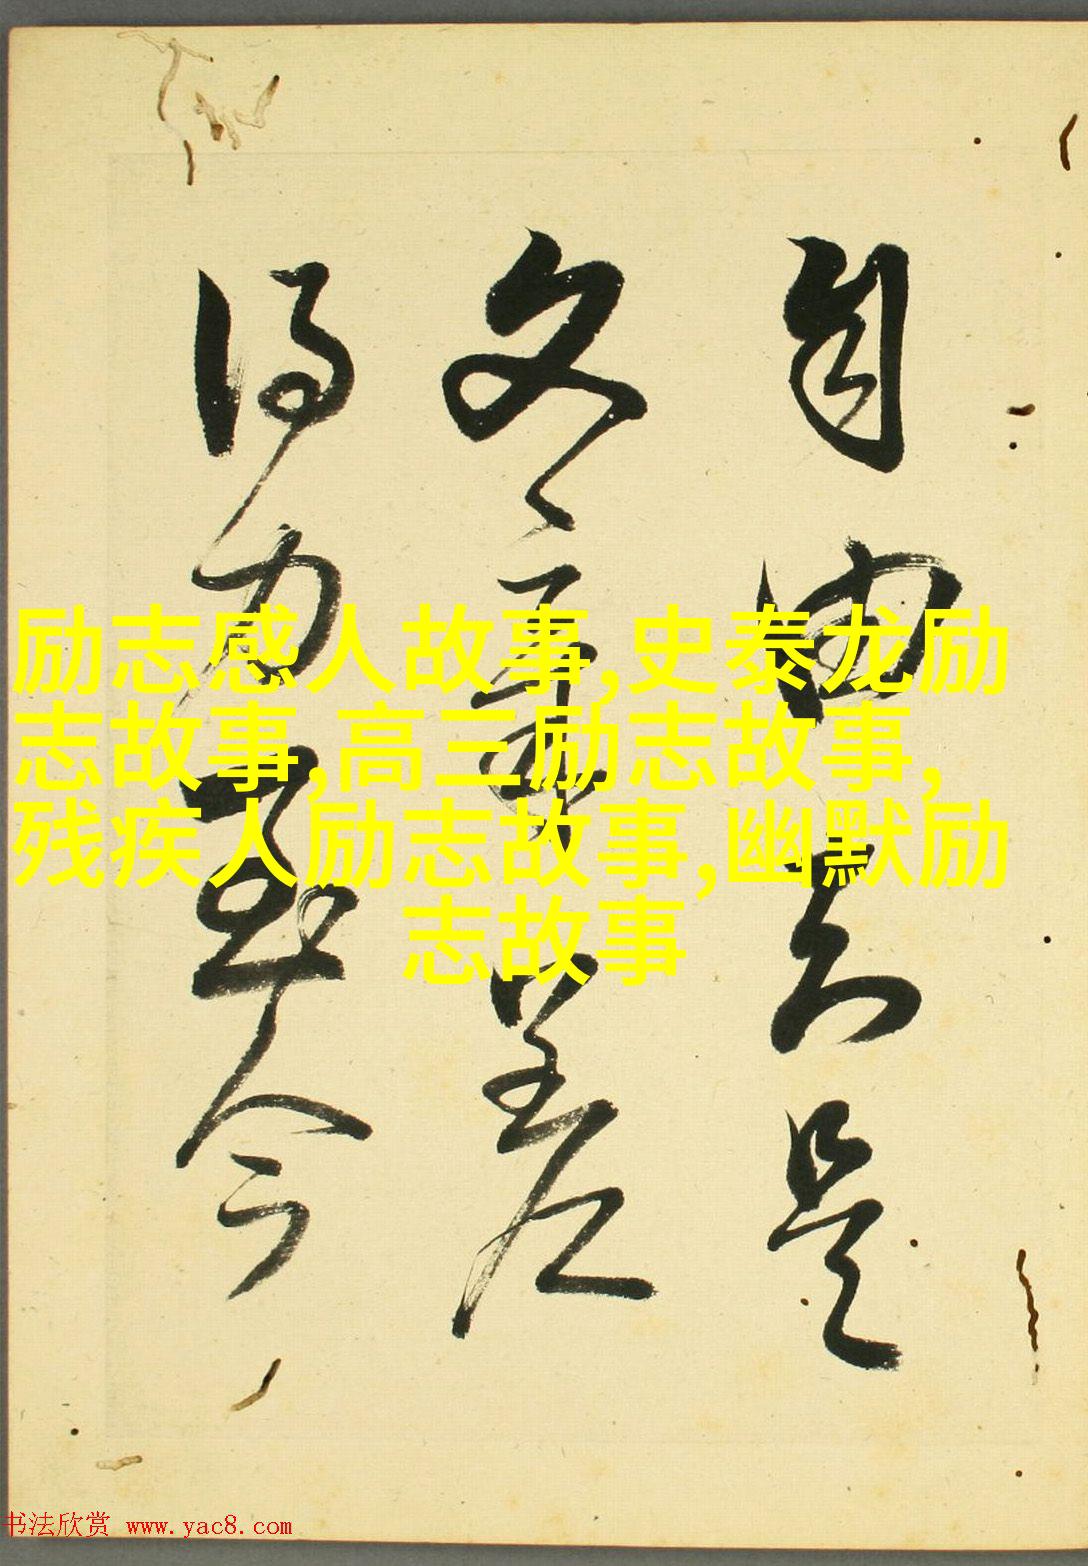 励志感人故事,史泰龙励
志故事,高三励志故事,
残疾人励志故事,幽默励
志故事
自由知是
文章差
得力至今
书法欣赏 www.yac8.com